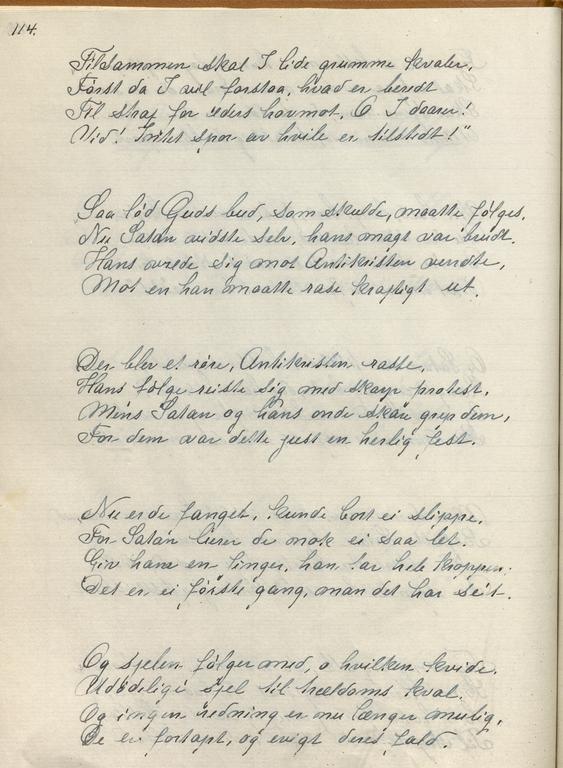 114.
Tilsammen skal I lide grumme kvaler,
Først da I vil forstaa, hvad er beredt
Til straf for eders hovmot, O I daarer!
Vid! Intet spor av hvile er tilstedt!"
Saa lød Guds bud, som skulde, maatte følges.
Nu Satan vidste selv, hans magt var brudt.
Hans vrede sig mot Antikristen vendte,
Mot en han maatte rase kraftigt ut.
Der blev et røre, Antikristen raste,
Hans følge reiste sig med skarp protest,
Mens Satan og hans onde skare grep dem,
For dem var dette just en herlig fest.
Nu er de fanget, kunde bort ei slippe,
For Satan lurer de nok ei saa let.
Giv ham en finger, han tar hele kroppen.
Det er ei første gang, man det har se't.
Og sjelen følger med, o hvilken kvide.
Udødelige sjel til trældoms kval.
Og ingen redning er nu længer mulig,
De er fortapt, og evigt deres fald.